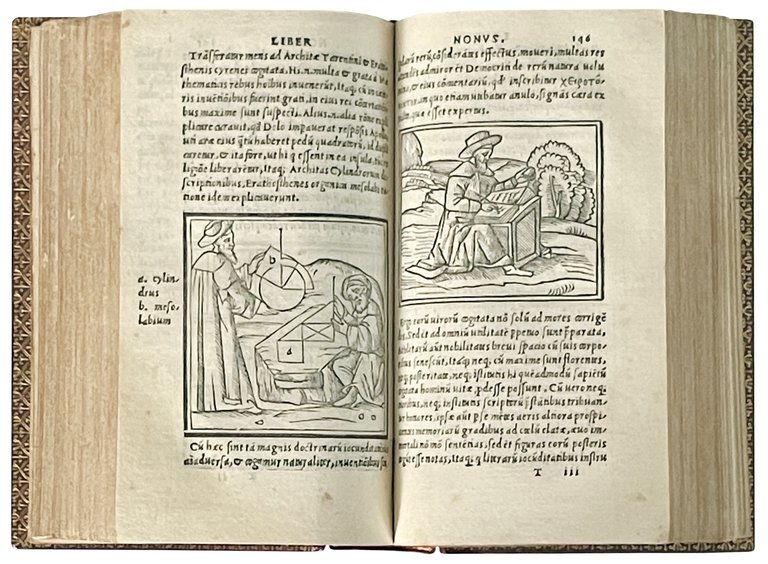 LIBER
Trãsferatur mens ad Architæ Tarentini & Erato
sthenis Cyrenei cogitata, Hi.n.multa & grata a Ma
thematicis rebus hoibus invenerunt, Itaq; cũ in cæte
ris invẽtiõibus fuerint grati, in eius rei
bus maxime sunt suspecti. Alius.n.alia rõne
plicare curavit, qđ Delo imperaverat respõsis
uti aræ eius q̃tũ haberet pedũ quadratorũ, id
caretur, & ita fore, ut hi q essent in ea insula, tũc
ligiõe liberarẽtur, Itaq; Architas Cylindrorum
scriptionibus, Eratosthenes organica mesolabi
tione idem explicaverunt.
a. cylin-
drus
b. meso-
labium
b
a
Cũ hæc sint tã magnis doctrinarũ iocunditatibus
aĩadversa, & cogamur naturaliter, inventiõibus
NONUS. 146
rerũ, cõsiderãtis effectus, moveri, multas res
admiror et Democriti de rerũ natura volu
et eius cõmentariũ, qđ inscribitur
in quo etiam utebatur anulo, signãs cera ex
quæ esset expertus.
Ergo eorũ virorũ cogitata nõ solũ ad mores corrigẽ
Sed et ad omniũ utilitatẽ ppetuo sunt p̃parata,
aũt nobilitates brevi spacio cũ suis corpo
senescũt, Itaq; neq; cũ maxime sunt florentes,
posteritate, neq; institutis hi quẽadmodũ sapiẽtũ
cogitata hominũ vitæ, pdesse possunt. Cũ vero neq;
moribus, neq; institutis scriptorũ p̃stãtibus tribuan-
tur honores, ipsæ aũt p se mẽtes aeris altiora prospi
memoriarũ gradibus ad cœlũ elatæ, ævo im
nõ mõ sentẽtias, sed et figuras eorũ posteris
esse notas, Itaq; q literarũ iocũditatibus instru
T iii